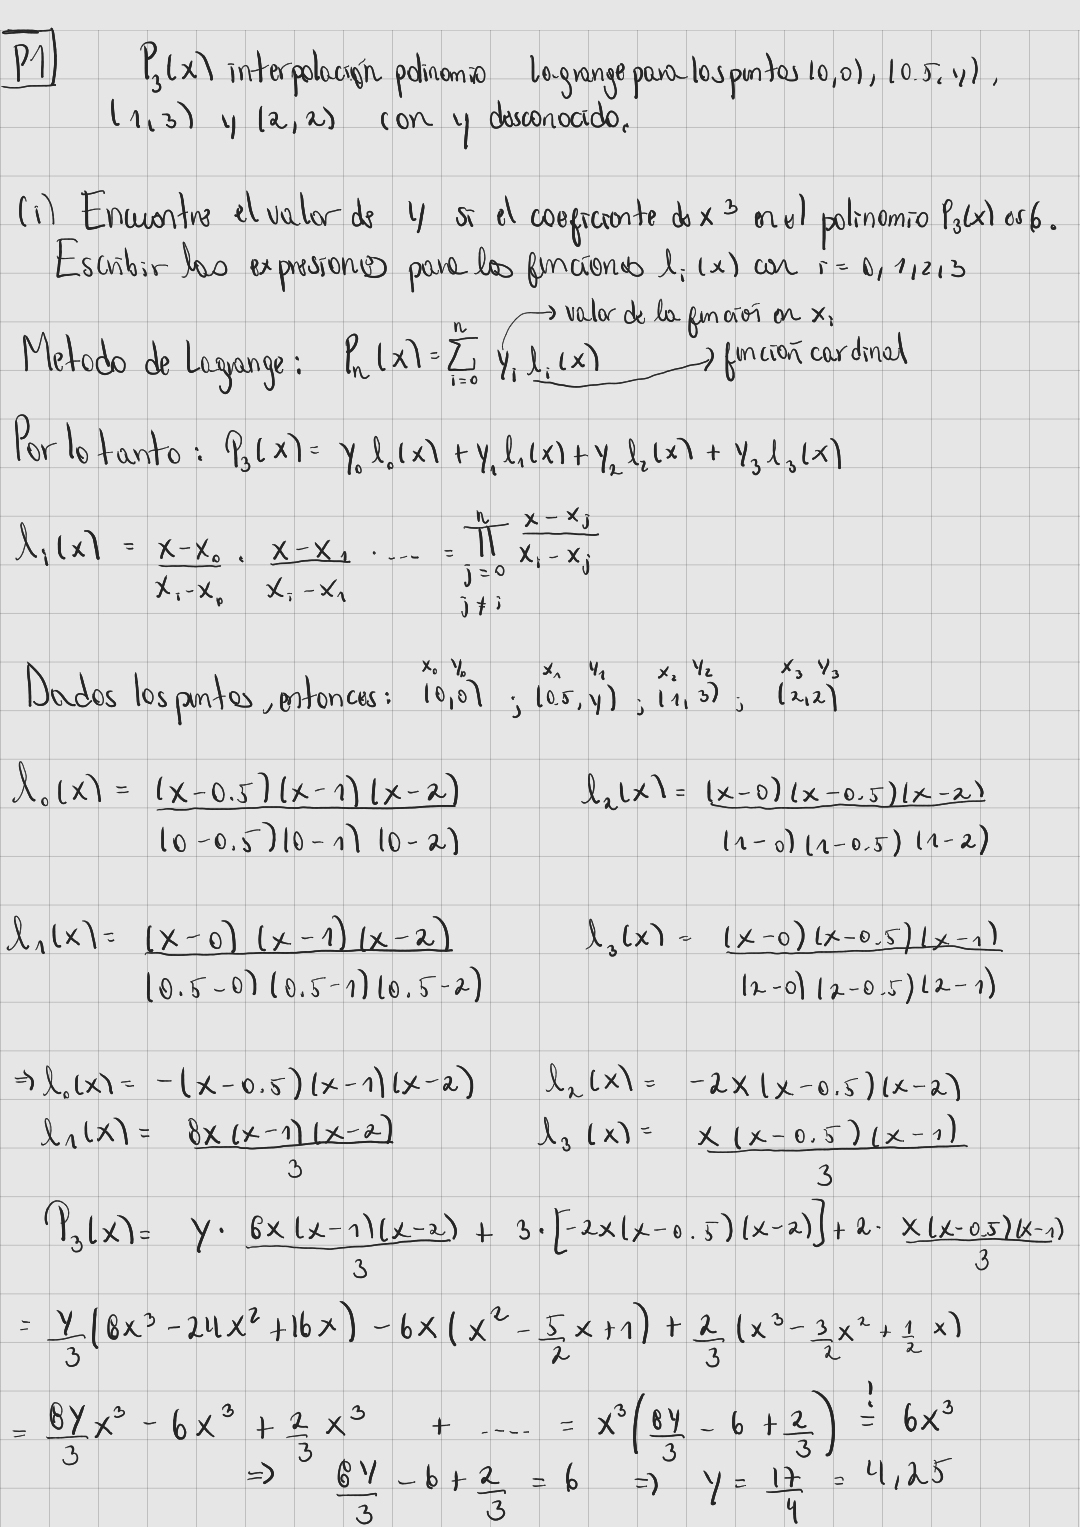 P1 P₃(x) interpolación polinomio lagrange para los puntos (0,0), (0.5, y),
(1,3) y (2,2) con y desconocido.
(i) Encuentre el valor de y si el coeficiente de x³ en el polinomio P₃(x) es 6.
Escribir las expresiones para las funciones lᵢ(x) con i = 0, 1, 2, 3
→ valor de la función en xᵢ
Metodo de Lagrange: Pₙ(x) = Σ_{i=0}^{n} yᵢ lᵢ(x) → función cardinal
Por lo tanto: P₃(x) = y₀ l₀(x) + y₁ l₁(x) + y₂ l₂(x) + y₃ l₃(x)
lᵢ(x) = (x-x₀)/(xᵢ-x₀) · (x-x₁)/(xᵢ-x₁) · .... = ∏_{j=0, j≠i}^{n} (x-xⱼ)/(xᵢ-xⱼ)
x₀ y₀ x₁ y₁ x₂ y₂ x₃ y₃
Dados los puntos, entonces: (0,0) ; (0.5, y) ; (1, 3) ; (2,2)
l₀(x) = (x-0.5)(x-1)(x-2) / (0-0.5)(0-1)(0-2) l₂(x) = (x-0)(x-0.5)(x-2) / (1-0)(1-0.5)(1-2)
l₁(x) = (x-0)(x-1)(x-2) / (0.5-0)(0.5-1)(0.5-2) l₃(x) = (x-0)(x-0.5)(x-1) / (2-0)(2-0.5)(2-1)
⇒ l₀(x) = -(x-0.5)(x-1)(x-2) l₂(x) = -2x(x-0.5)(x-2)
l₁(x) = 8x(x-1)(x-2) / 3 l₃(x) = x(x-0.5)(x-1) / 3
P₃(x) = y · 8x(x-1)(x-2) / 3 + 3·[-2x(x-0.5)(x-2)] + 2· x(x-0.5)(x-1) / 3
= y/3 (8x³ - 24x² + 16x) - 6x(x² - 5/2 x + 1) + 2/3 (x³ - 3/2 x² + 1/2 x)
= 8y/3 x³ - 6x³ + 2/3 x³ + .... = x³(8y/3 - 6 + 2/3) =! 6x³
⇒ 8y/3 - 6 + 2/3 = 6 ⇒ y = 17/4 = 4,25